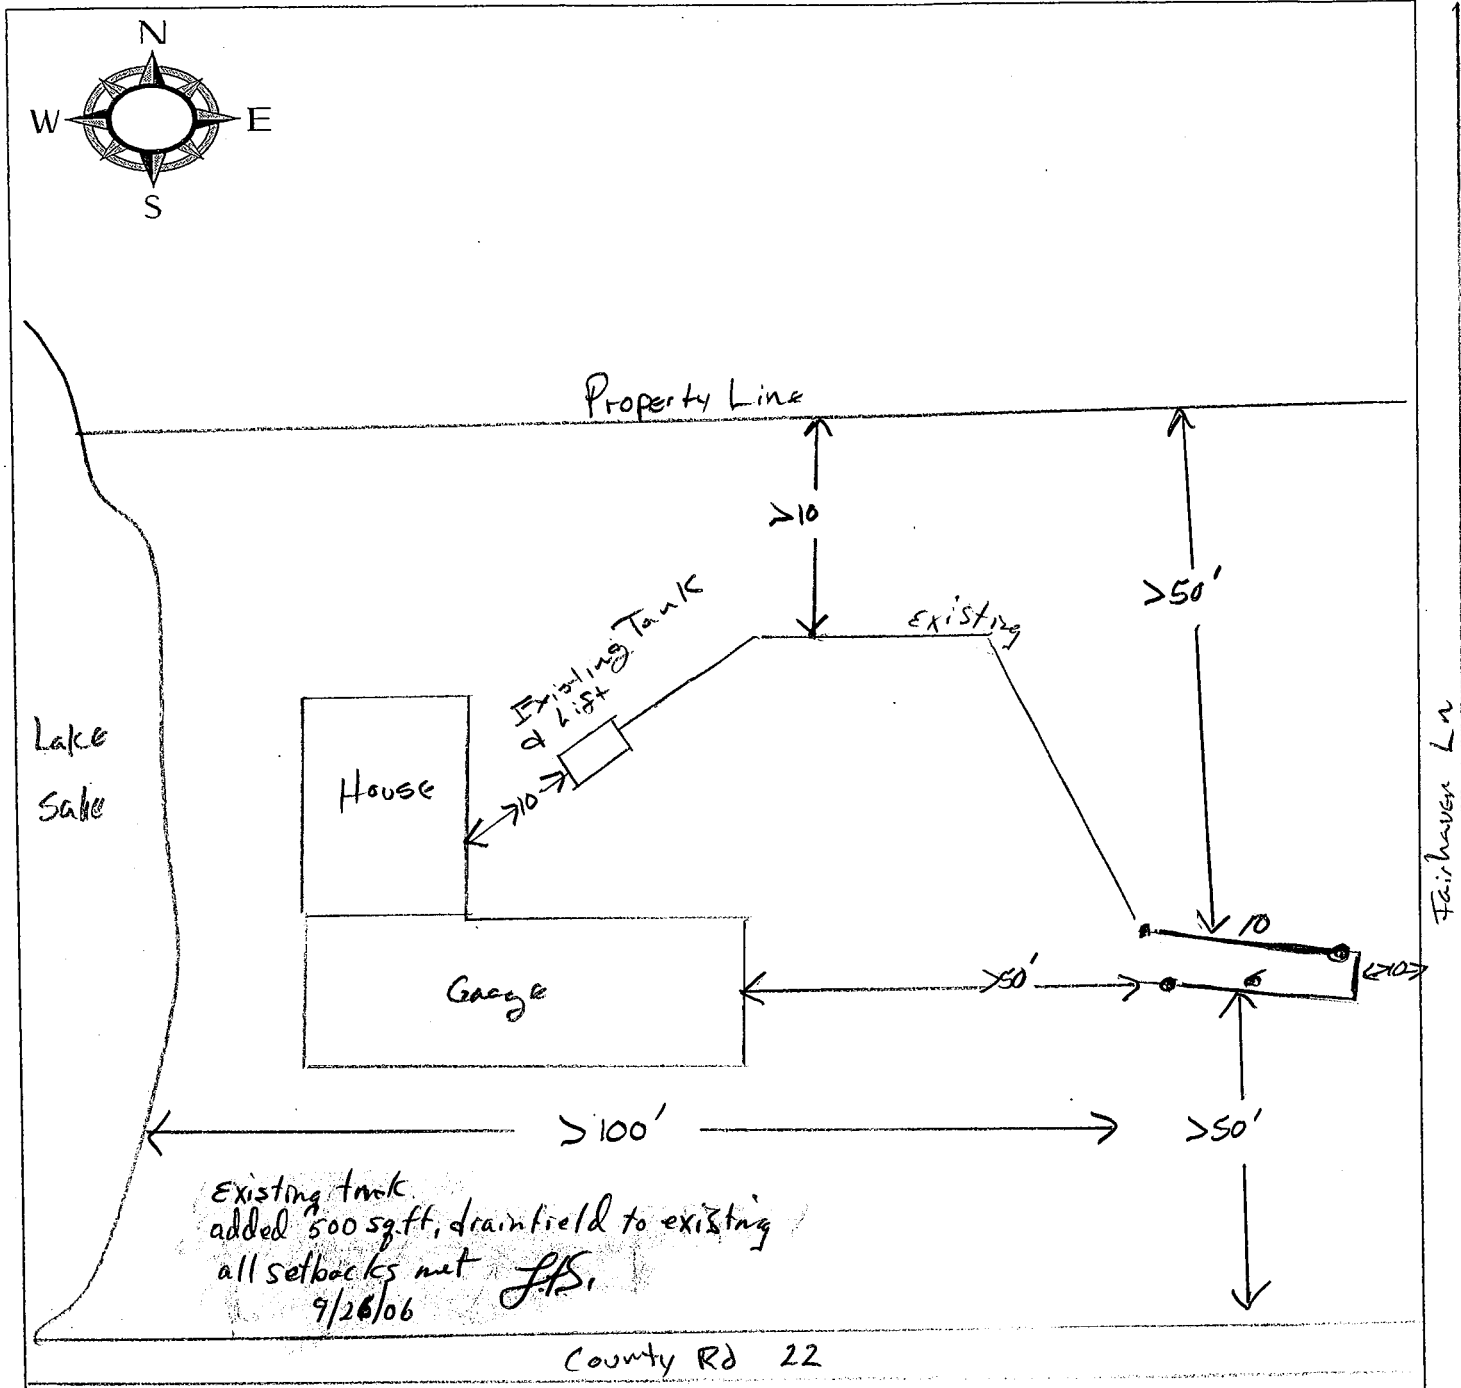 N
W E
S
Property Line
>10
>50'
Existing Tank
& Lift
Existing
Lake
Salie
House
10
Fairhaven Ln
10
<10>
Garage
>50'
6
>100'
>50'
Existing tank
added 500 sq.ft. drainfield to existing
all setbacks met
9/26/06
County Rd 22